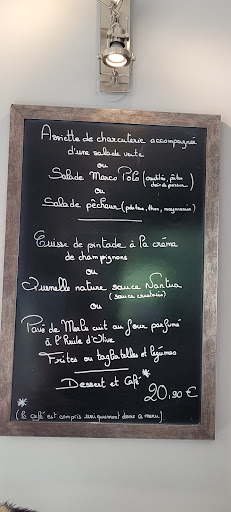 Assiette de charcuterie accompagnée
d'une salade verte
ou
Salade Marco Polo (
ou
Salade pêcheur (patates, thon, mayonnaise)
Cuisse de pintade à la crème
de champignons
ou
Quenelle nature sauce Nantua
(sauce
ou
Pavé de Merlu cuit au four parfumé
à l'Huile d'Olive
Frites ou tagliatelles et légumes
Dessert et Café *
20,90 €
* (Le café est compris uniquement dans ce menu)